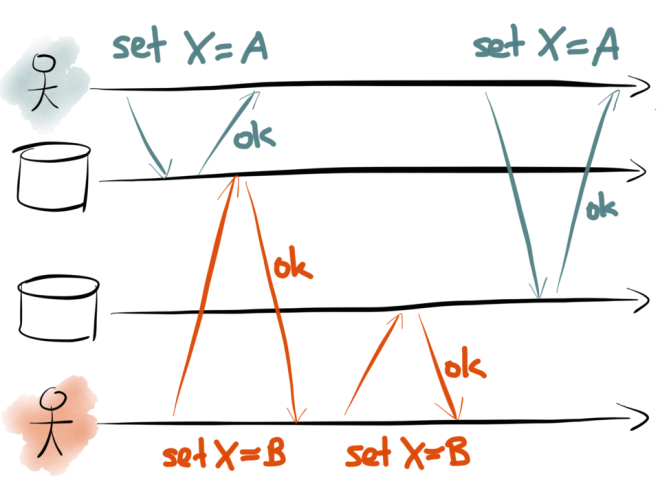 set X=A
set X=A
ok
ok
ok
ok
set X=B
set X=B